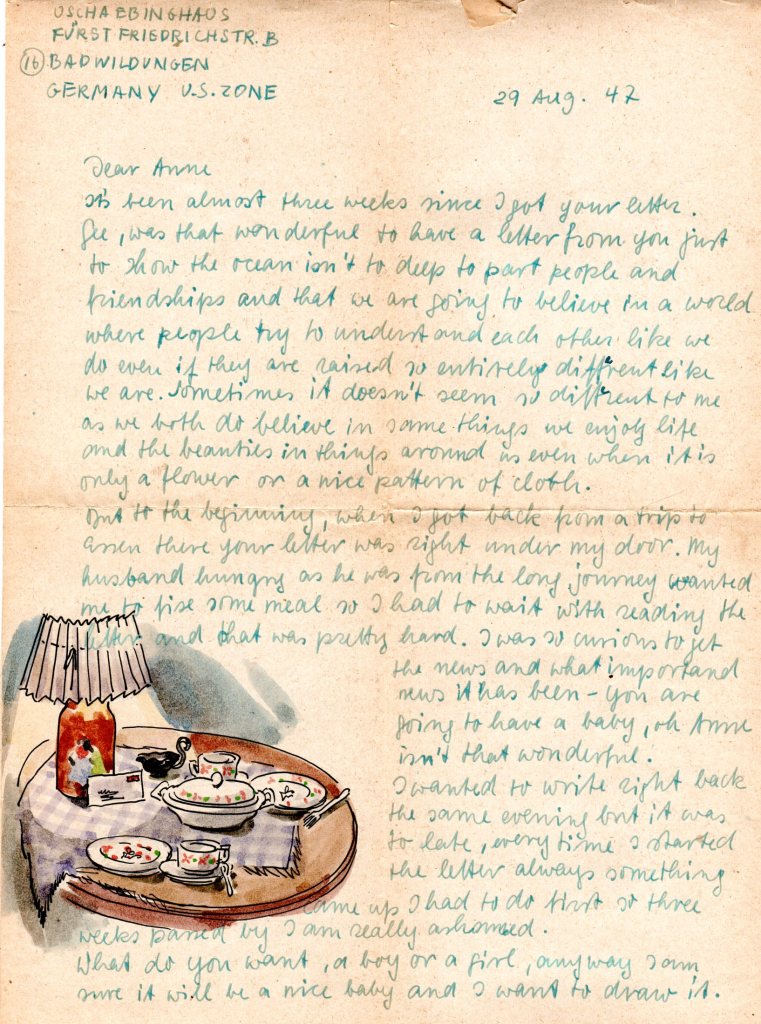 USCHA EBINGHAUS
FÜRST FRIEDRICHSTR. B
16 BAD WILDUNGEN
GERMANY U.S. ZONE
29 Aug. 47
Dear Anne
It's been almost three weeks since I got your letter.
Gee, was that wonderful to have a letter from you just
to show the ocean isn't to deep to part people and
friendships and that we are going to believe in a world
where people try to understand each other like we
do even if they are raised so entirely different like
we are. Sometimes it doesn't seem so different to me
as we both do believe in same things we enjoy life
and the beauties in things around us even when it is
only a flower or a nice pattern of cloth.
But to the beginning, when I got back from a trip to
Essen there your letter was right under my door. My
husband hungry as he was from the long journey wanted
me to fixe some meal so I had to wait with reading the
letter and that was pretty hard. I was so curious to get
the news and what importand
news it has been - you are
going to have a baby, oh Anne
isn't that wonderful.
I wanted to write right back
the same evening but it was
to late, every time I started
the letter always something
came up I had to do first so three
weeks passed by I am really ashamed.
What do you want, a boy or a girl, anyway I am
sure it will be a nice baby and I want to draw it.